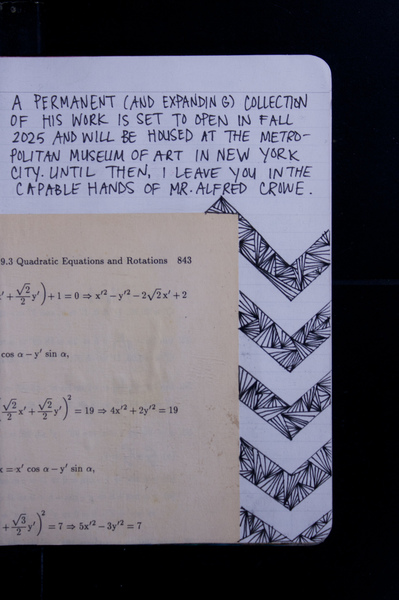 A PERMANENT (AND EXPANDING) COLLECTION
OF HIS WORK IS SET TO OPEN IN FALL
2025 AND WILL BE HOUSED AT THE METRO-
POLITAN MUSEUM OF ART IN NEW YORK
CITY. UNTIL THEN, I LEAVE YOU IN THE
CAPABLE HANDS OF MR. ALFRED CROWE.
9.3 Quadratic Equations and Rotations 843
′ + √2/2 y′) + 1 = 0 ⇒ x′² − y′² − 2√2x′ + 2
cos α − y′ sin α,
(√2/2 x′ + √2/2 y′)² = 19 ⇒ 4x′² + 2y′² = 19
x = x′ cos α − y′ sin α,
+ √3/2 y′)² = 7 ⇒ 5x′² − 3y′² = 7